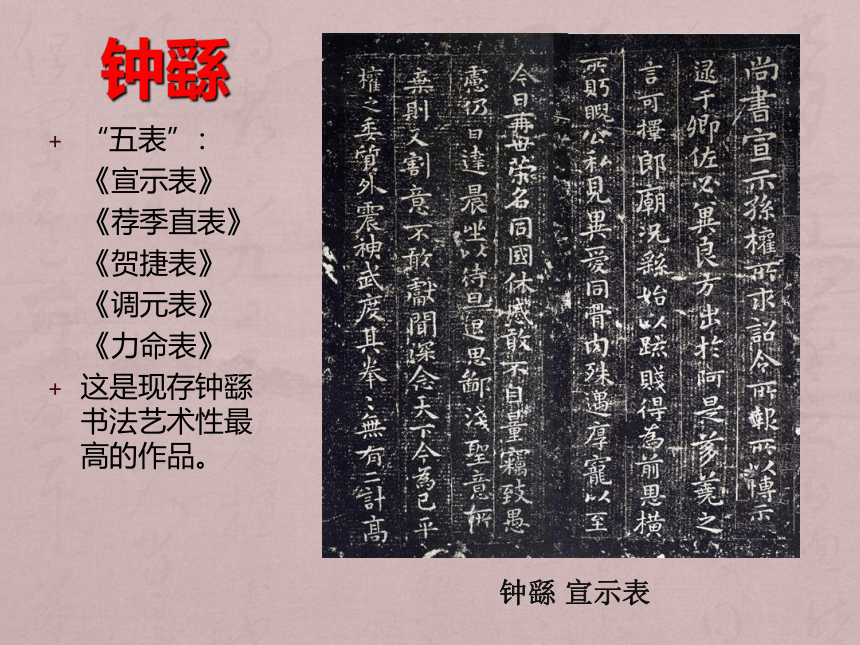 钟繇
+ “五表”：
《宣示表》
《荐季直表》
《贺捷表》
《调元表》
《力命表》
+ 这是现存钟繇
书法艺术性最
高的作品。
尚書宣示孫權所求詔令所報所以博示
逮于卿佐必冀良方出於阿是芻蕘之
言可擇郎廟況繇始以疏賤得為前恩橫
所盻睨公私見異愛同骨肉殊遇厚寵以至
今日再世榮名同國休慼敢不自量竊致愚
慮仍日達晨坐以待旦退思鄙淺聖意所
棄則又割意不敢獻聞深念天下今為已平
權之委質外震神武度其拳〻無有二計高
钟繇 宣示表